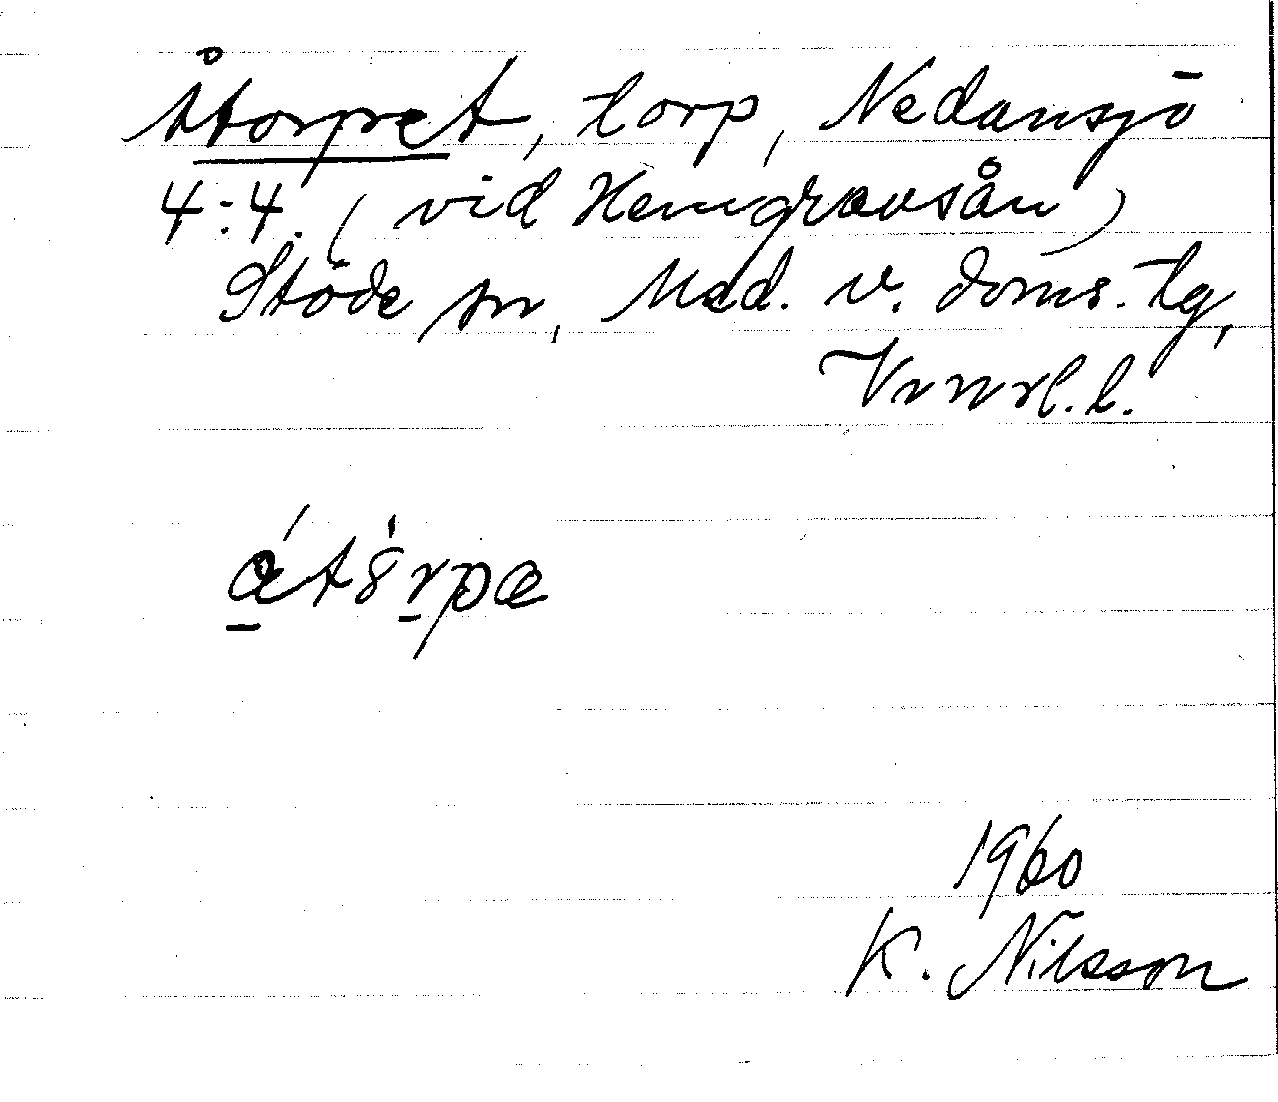 Åtorpet, torp, Nedansjö
4:4. (vid Hemgravsån)
Stöde sn, Med. v. doms. tg,
Vnrl. l.
1960
K. Nilsson